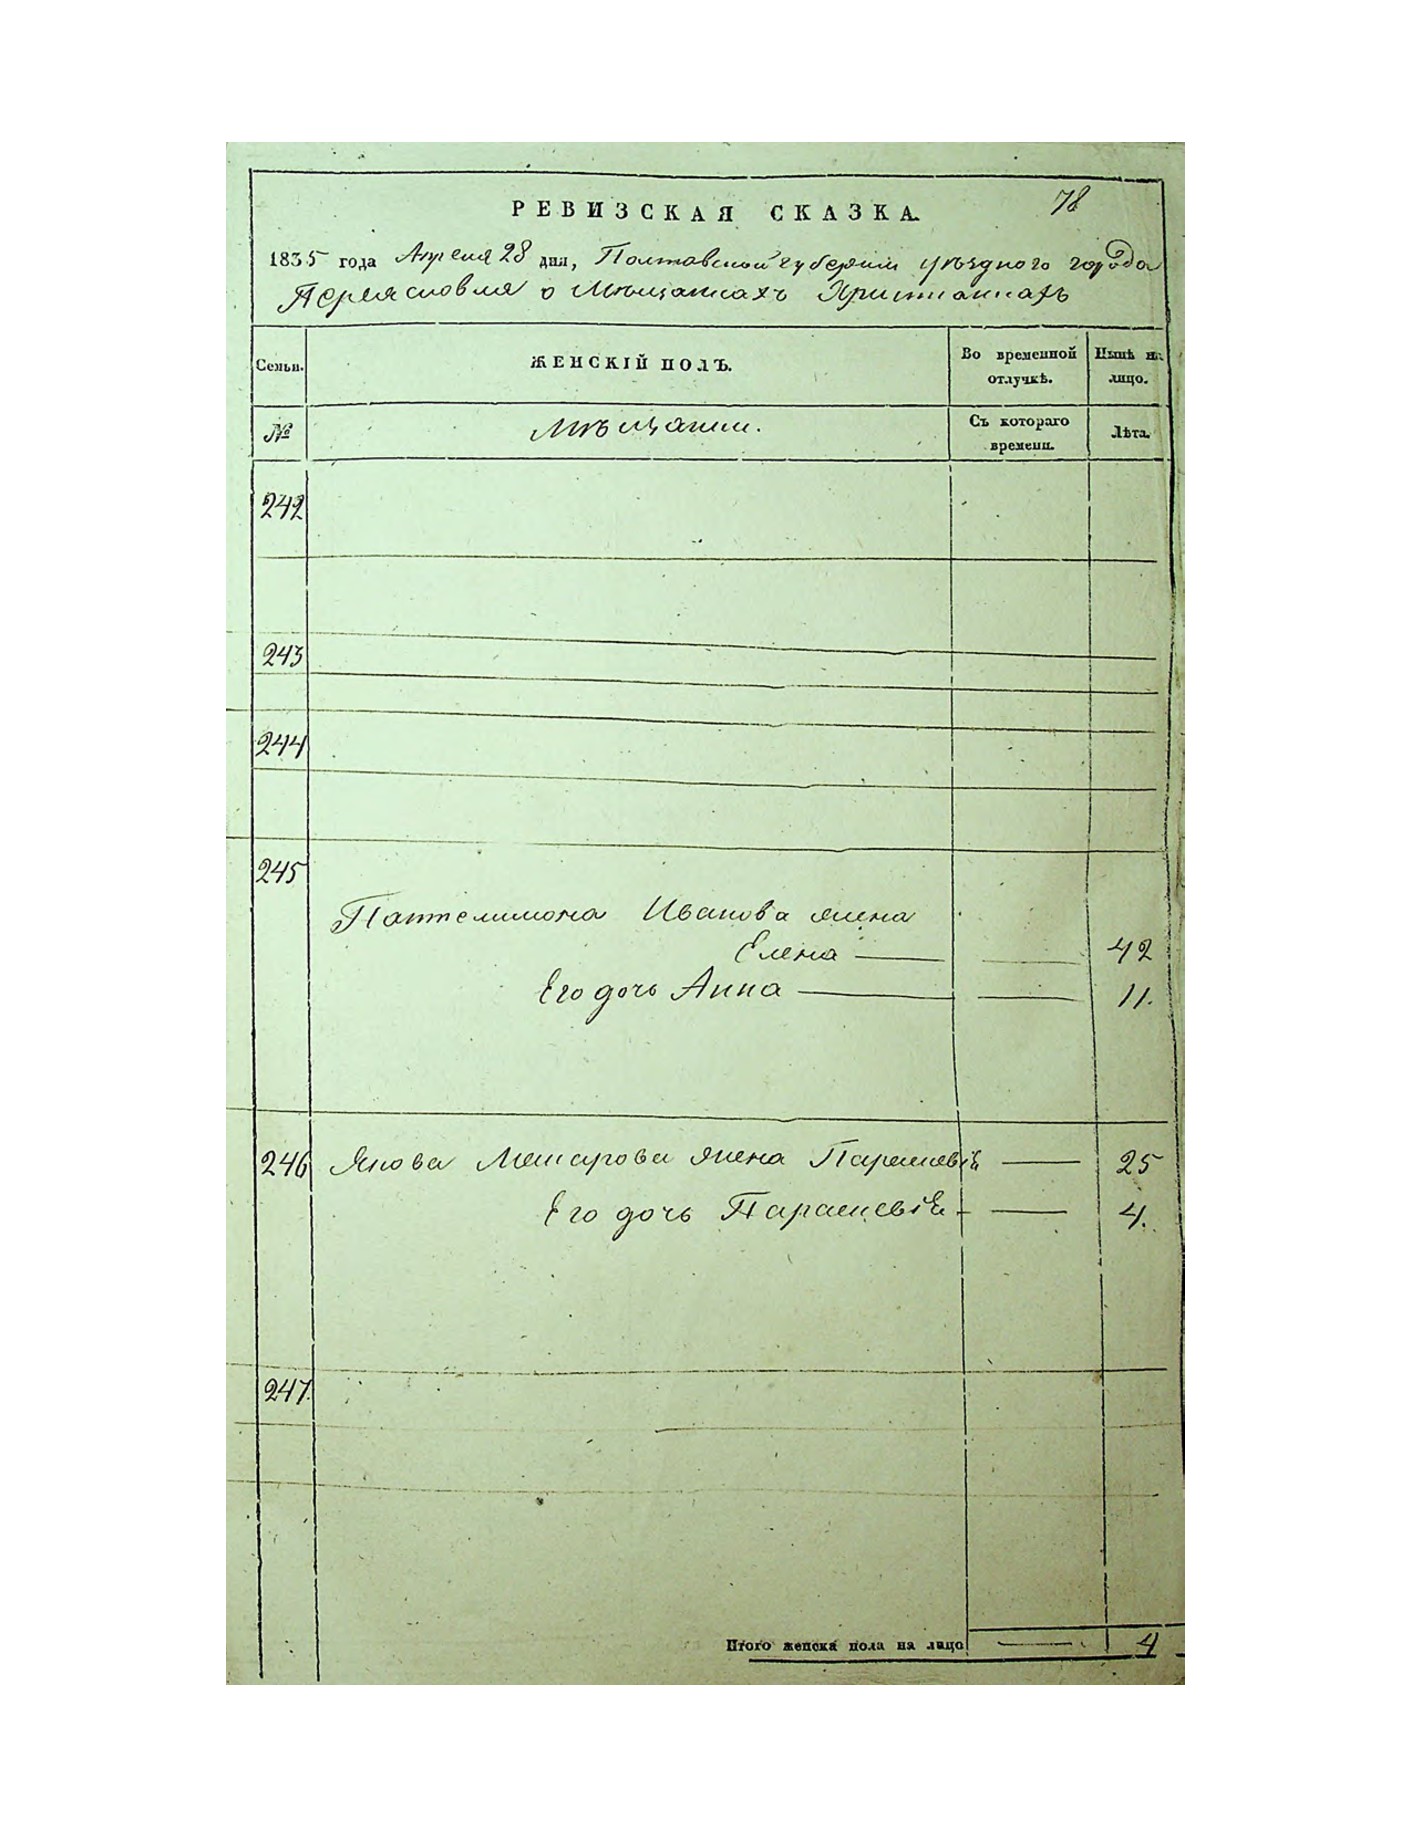 РЕВИЗСКАЯ СКАЗКА.
78
1835 года Апреля 28 дня, Полтавской губернии уѣздного города
Переяславля о Мѣщанахъ Христианахъ
Семьи. ЖЕНСКІЙ ПОЛЪ. Во временной отлучкѣ. Нынѣ на лицо.
№ Мѣщане. Съ котораго времени. Лѣта.
242
243
244
245
Пантелимона Иванова жена
Елена — — 42
Его дочь Анна — — 11.
246 Якова жена Параскевія — 25
Его дочь Параскевія — 4.
247.
Итого женска пола на лицо — 4